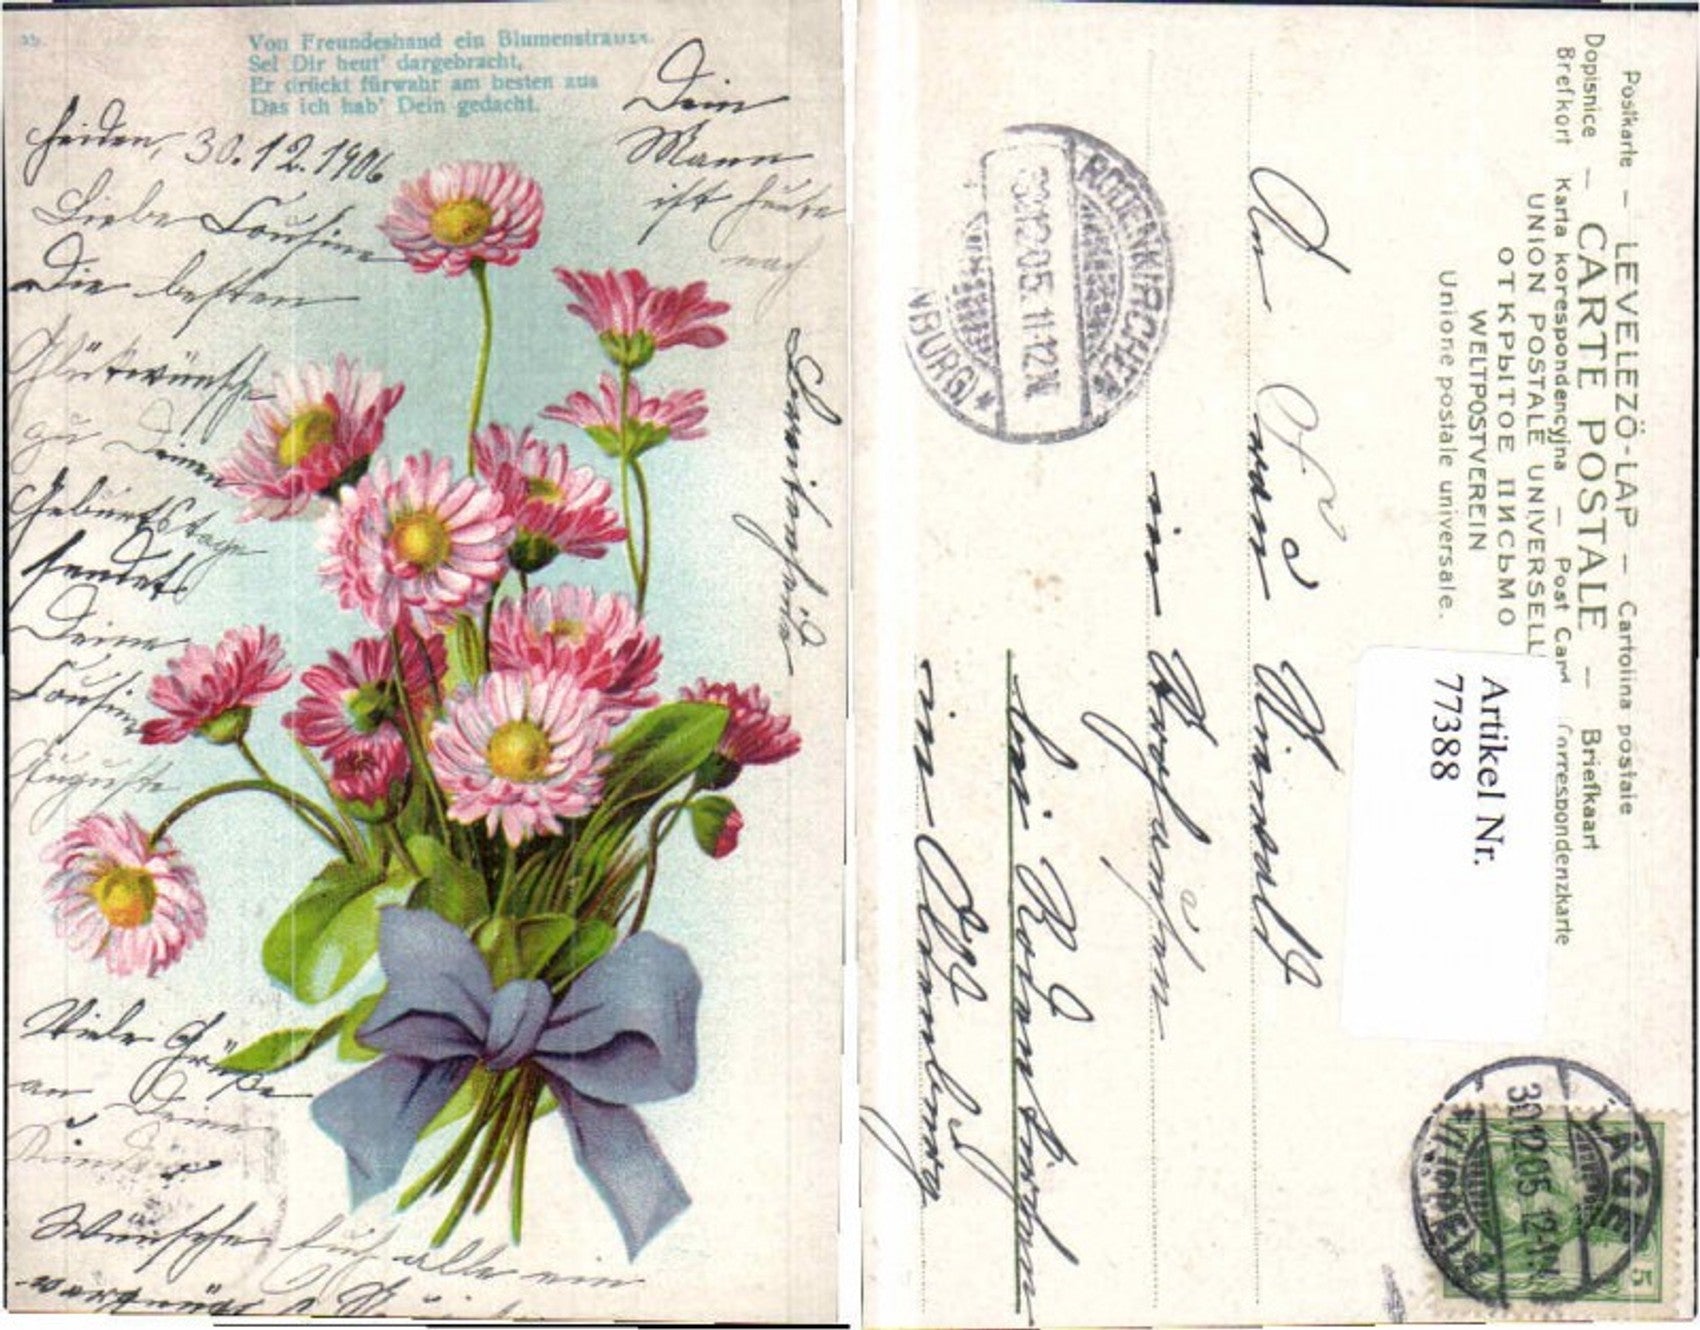 Von Freundeshand ein Blumenstrauss.
Sei Dir heut' dargebracht,
Er drückt fürwahr am besten aus
Das ich hab' Dein gedacht.
Heiden, 30.12.1906
Liebe Cousine
Die besten
Glückwünsche
zu Deinem
Geburtstage
sendet
Deine
Cousine
Auguste
Viele Grüße
an Deine
Wünsche Euch alle ein
Dein
Mann
ist heute
nach
Postkarte – LEVELEZŐ-LAP – Cartolina postale
Dopisnice – CARTE POSTALE – Briefkaart
Brefkort Karta korespondencyjna – Post Card Correspondenzkarte
UNION POSTALE UNIVERSELL
ОТКРЫТОЕ ПИСЬМО
WELTPOSTVEREIN
Unione postale universale.
Artikel Nr.
77388
LAGE
30.12.05.12-1N
(LIPPE)
5
RODENKIRCHEN
30.12.05.11-12N.
BURG)
An
Frau
in
bei Rodenkirchen
in Oldenburg